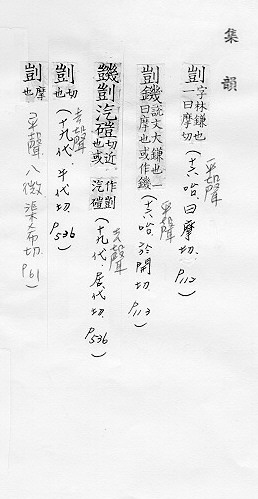 集韻
剴 字林鎌也一曰摩切 (十六咍 曰摩切 P112) 平聲
剴鐖 說文大鎌也一曰摩也或作鐖 (十六咍 於開切 P113) 平聲
鐖剴汽磑 切近也或作剴汽磑 (十九代 居代切 P536) 去聲
剴 切也 (十九代 牛代切 P536) 去聲
剴 摩也 平聲 八微 渠希切 P61)